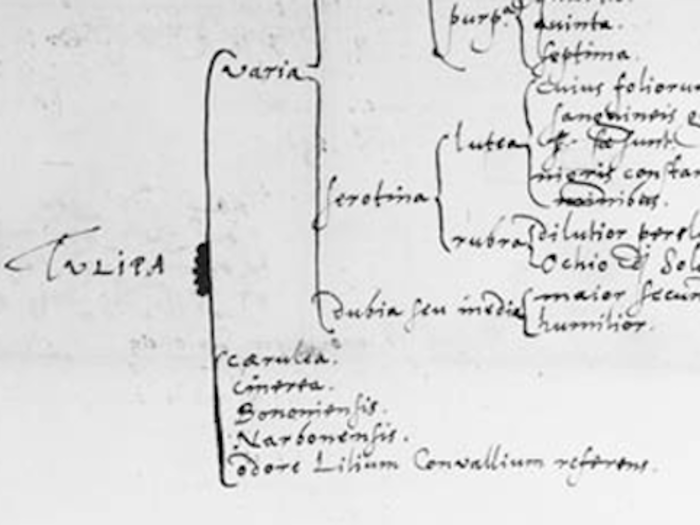 purp.
quinta.
septima.
varia
Cuius foliorum
sanguineis
lutea
sunt
nigris constan
serotina
rubra
dilutior
Ochio di Sol
TULIPA
Dubia seu media
maior secun
humilior.
Cærulea.
Cinerea.
Bononiensis.
Narbonensis.
Odore Lilium Convallium referens.